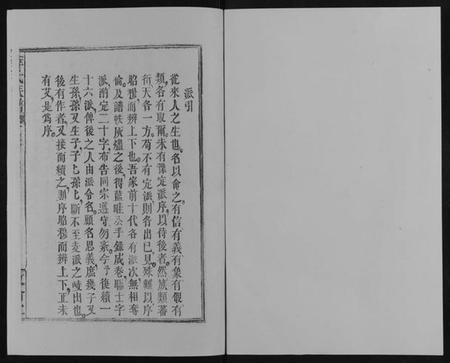 派引
從來人之生也名以命之有信有義有象有假有
類各有取爾未有豫定派序以待後者然族類蕃
衍天各一方苟不有定派則各出已見殊難以序
昭穆而辨上下也吾家前十代各有派次無相奪
倫及譜帙灰燼之後得藍田手錄成卷聯士字
派酌定二十字布告同宗遵守勿紊今予後續一
十六派俾後之人由派命名顧名思義庶幾子又
生孫孫又生子子子孫孫斷不至支派之岐出也
後有作者又接而續之則序昭穆而辨上下正未
有艾是為序